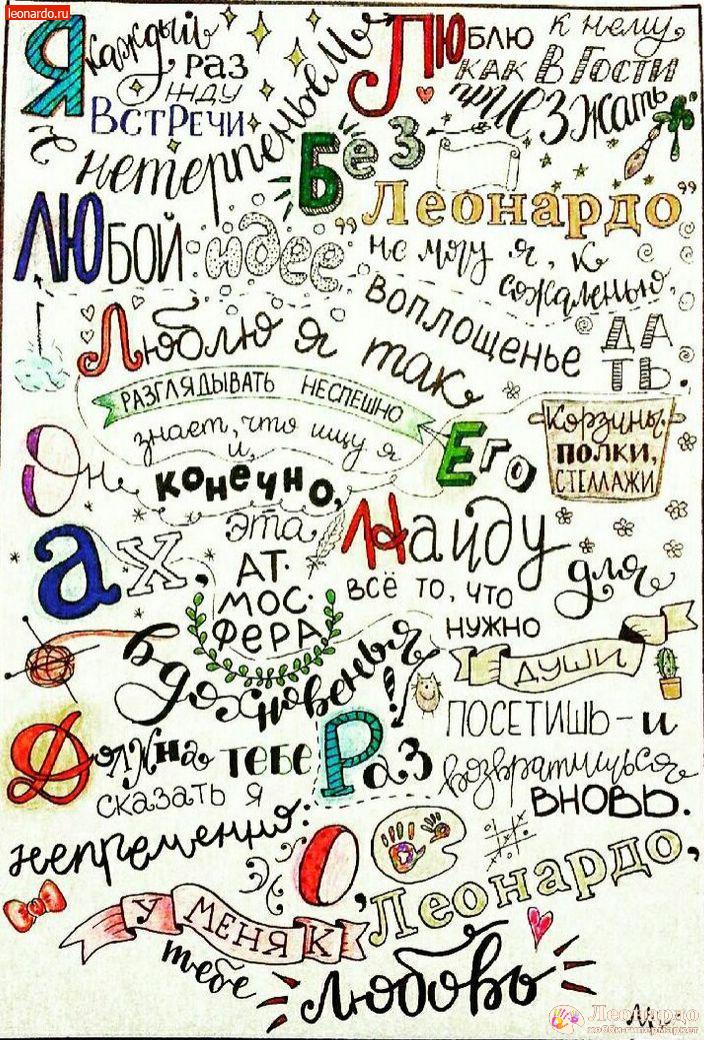 leonardo.ru
Я каждый раз жду встречи с нетерпеньем
Люблю к нему как в гости приезжать
Без „Леонардо” не могу я, к сожаленью,
Любой идее воплощенье дать.
Люблю я так разглядывать неспешно
Корзины, полки, стеллажи
Он знает, что ищу я и, конечно,
Его
Найду всё то, что нужно для души
Ах, эта атмосфера вдохновенья!
Раз посетишь - и возвратишься вновь.
Должна тебе сказать я непременно:
О, Леонардо, у меня к тебе любовь
Леонардо
хобби-гипермаркет